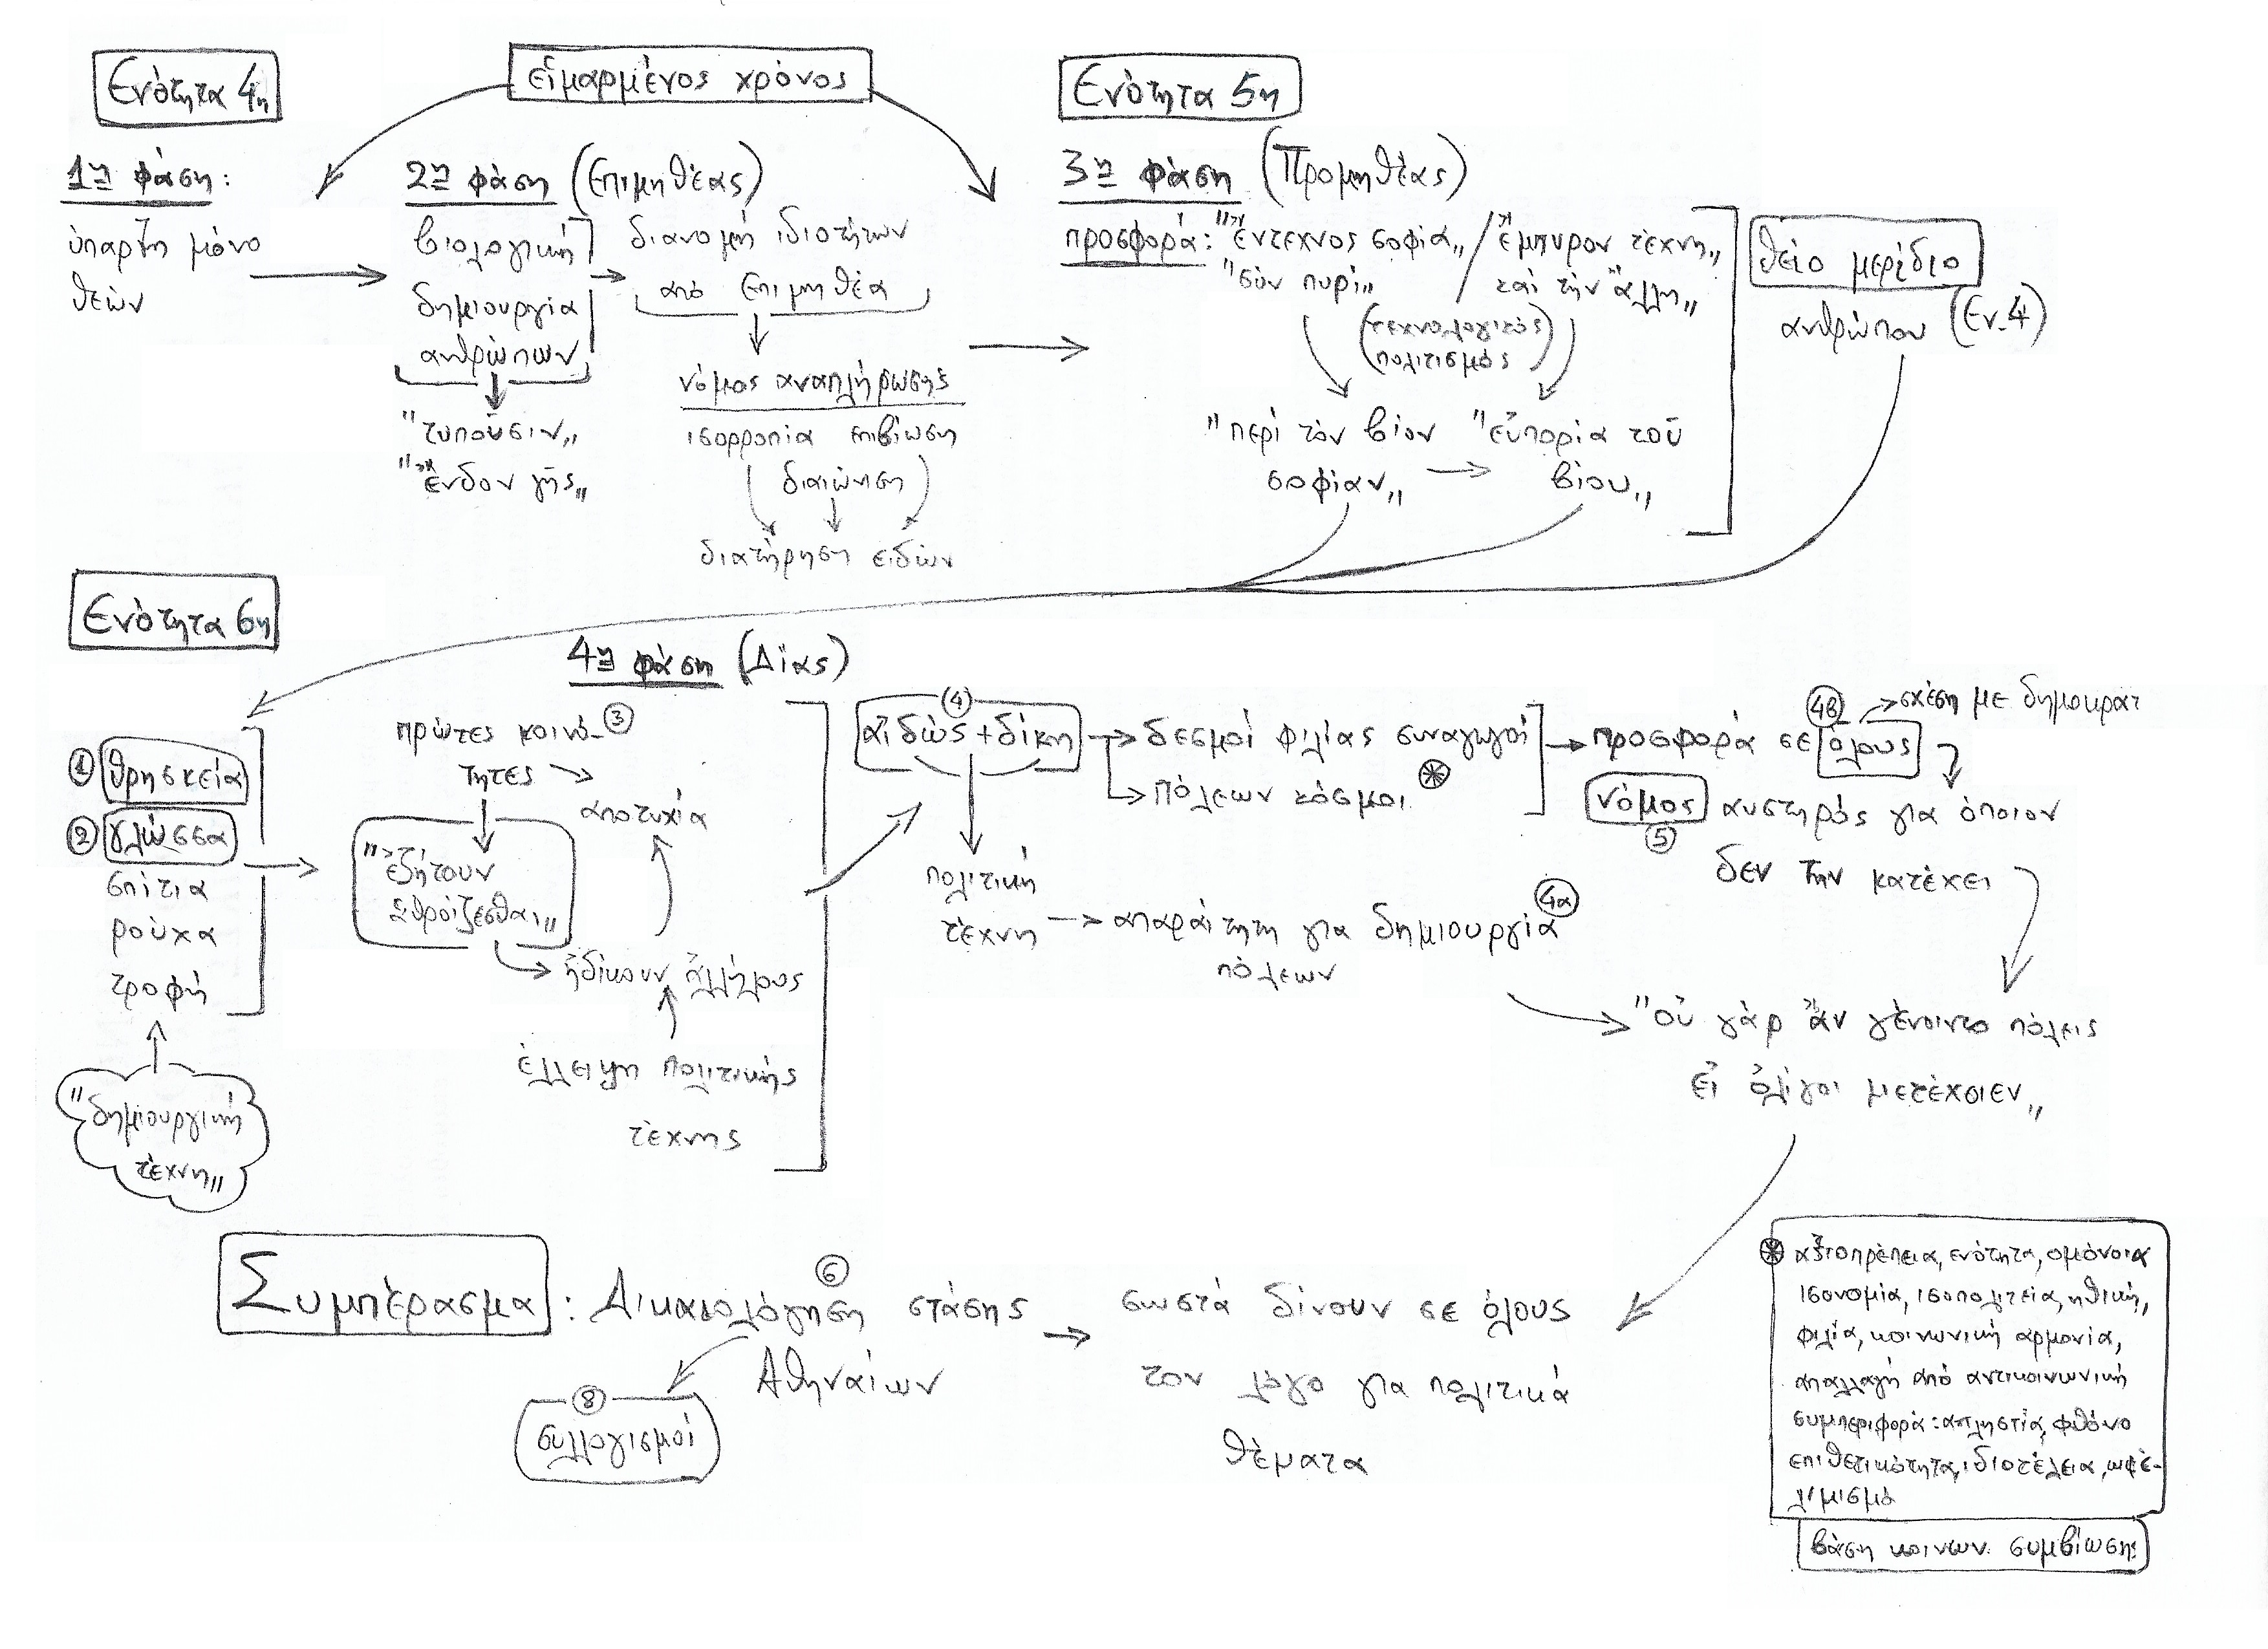 Ενότητα 4η
εἱμαρμένος χρόνος
Ενότητα 5η
1η φάση:
ύπαρξη μόνο
θεών
2η φάση (Επιμηθέας)
βιολογική
δημιουργία
ανθρώπων
"τυποῦσιν„
"ἔνδον γῆς„
διανομή ιδιοτήτων
από Επιμηθέα
νόμος αναπλήρωσης
ισορροπία επιβίωση
διαιώνιση
διατήρηση ειδών
3η φάση (Προμηθέας)
προσφορά: "ἔντεχνος σοφία„ / ἔμπυρον τέχνη„
"σὺν πυρί„ καὶ τὴν ἄλλη„
(τεχνολογικός
πολιτισμός)
"περί τὸν βίον "εὐπορία τοῦ
σοφίαν„ βίου„
θείο μερίδιο
ανθρώπου (Εν. 4)
Ενότητα 6η
4η φάση (Δίας)
① θρησκεία
② γλώσσα
σπίτια
ρούχα
τροφή
"δημιουργική
τέχνη„
πρώτες κοινό- ③
τητες
αποτυχία
"ἐζήτουν
ἁθροίζεσθαι„
ἠδίκουν ἀλλήλους
έλλειψη πολιτικής
τέχνης
④
αἰδώς + δίκη
δεσμοί φιλίας συναγωγοί
πόλεων κόσμοι ⊛
πολιτική
τέχνη → απαραίτητη για δημιουργία 4α
πόλεων
4β σχέση με δημοκρατ
προσφορά σε όλους
νόμος αυστηρός για όποιον
⑤
δεν την κατέχει
"οὐ γὰρ ἂν γένοιντο πόλεις
εἰ ὀλίγοι μετέχοιεν„
Συμπέρασμα: Δικαιολόγηση ⑥ στάσης
Αθηναίων
⑧
συλλογισμοί
σωστά δίνουν σε όλους
τον λόγο για πολιτικά
θέματα
⊛ αξιοπρέπεια, ενότητα, ομόνοια
ισονομία, ισοπολιτεία, ηθική,
φιλία, κοινωνική αρμονία,
απαλλαγή από αντικοινωνική
συμπεριφορά: απληστία, φθόνο
επιθετικότητα, ιδιοτέλεια, ωφε-
λιμισμό
βάση κοινων. συμβίωσης